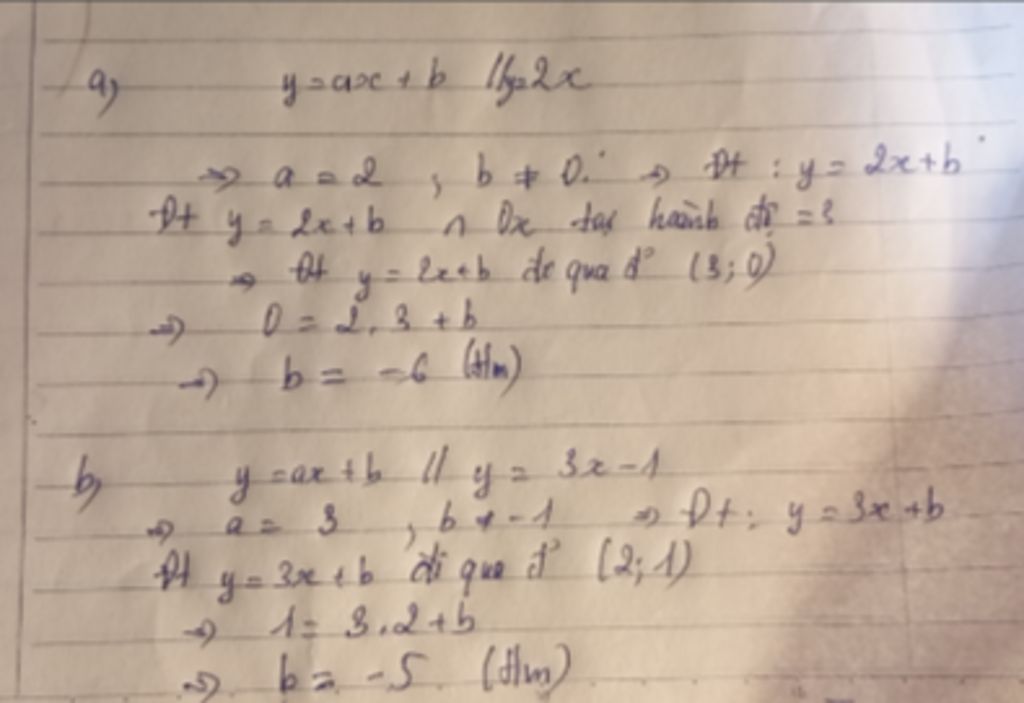 a) y = ax + b // y = 2x
=> a = 2 , b ≠ 0. => Đt : y = 2x + b
Đt y = 2x + b ∩ Ox tại hoành độ = 3
=> Đt y = 2x + b đi qua đ' (3; 0)
=> 0 = 2.3 + b
=> b = -6 (t/m)
b) y = ax + b // y = 3x - 1
=> a = 3 , b ≠ -1 => Đt : y = 3x + b
Đt y = 3x + b đi qua đ' (2; 1)
=> 1 = 3.2 + b
=> b = -5 (t/m)